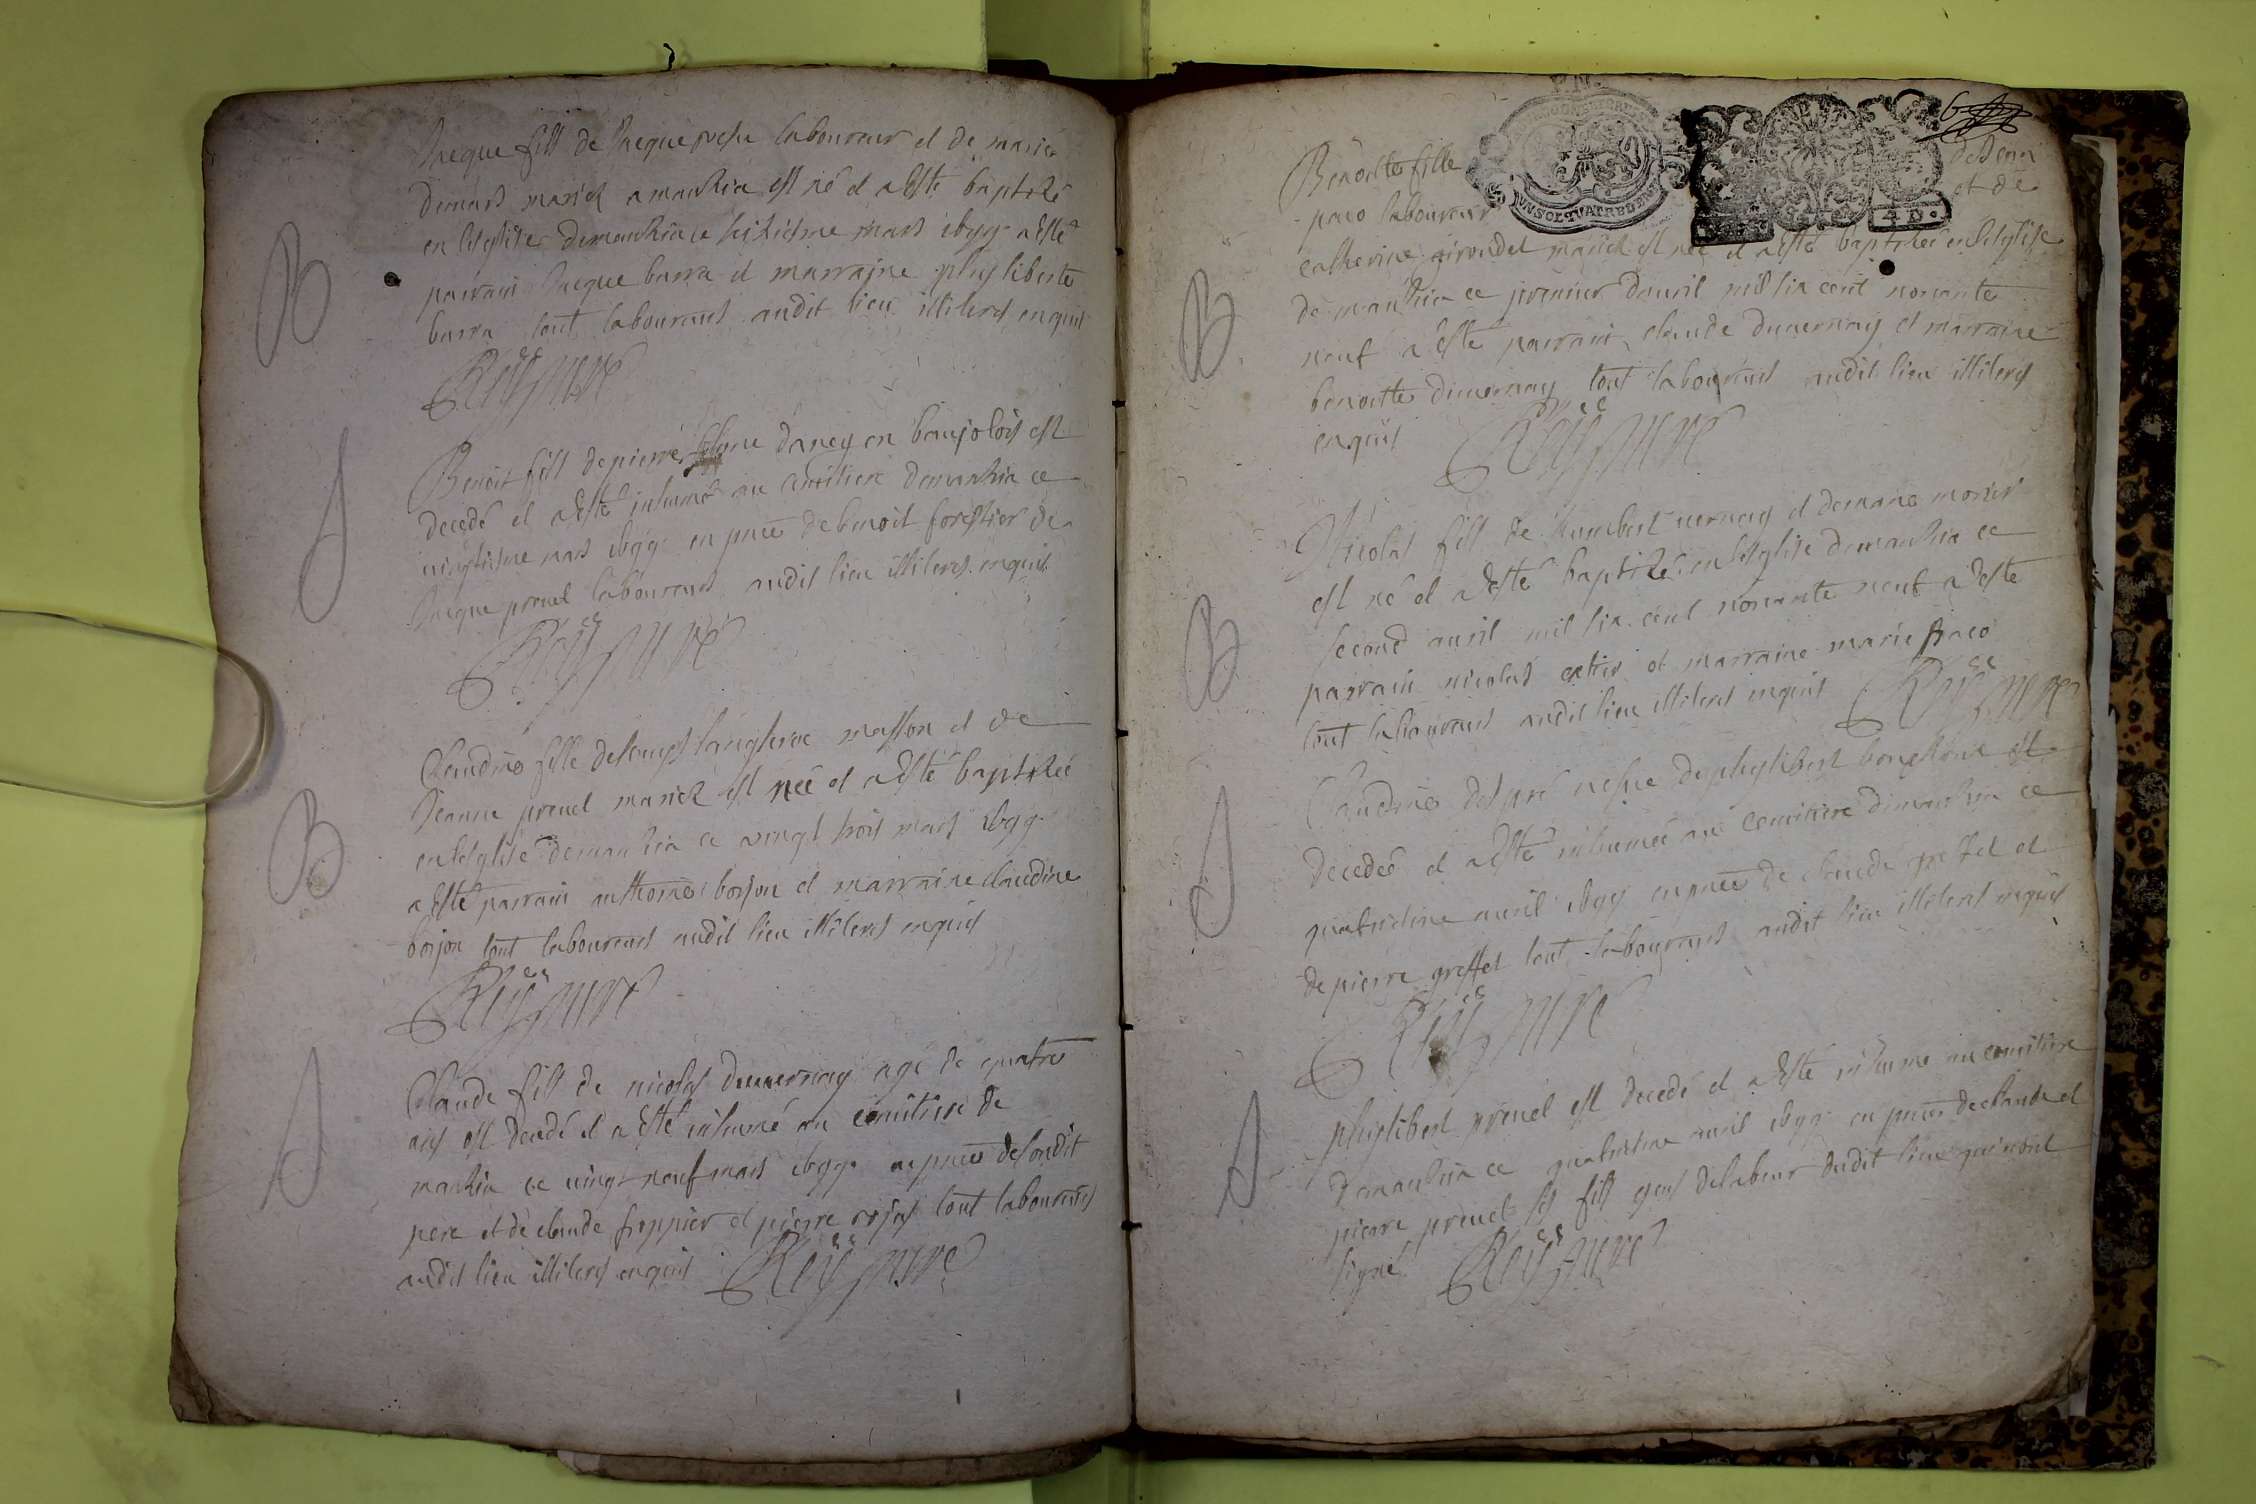 B
Jacque fils de Jacque laboureur et de marie
demurs mariez a manhia est né et a Esté baptizé
en lesglise demanhia ce seiziesme mars 1699 a Esté
parrain Jacque barra et marraine phylliberte
barra tout laboureurs audit lieu illiteres enquis
Rey cure
J
Benoit fils de pierre daney en baujolois est
decedé et a Esté inhumé au cemitiere demanhia ce
vingtiesme mars 1699 en pnce de benoit forestier et
Jacque preuel laboureurs audit lieu illiteres enquis
Rey cure
B
Claudine fille de masson et de
Jeanne preuel mariez est née et a Esté baptizée
en lesglise demanhia ce vingt trois mars 1699
a Esté parrain anthoine borjon et marraine claudine
borjon tout laboureurs audit lieu illiteres enquis
Rey cure
J
Claude fils de nicolas duuernay agé de quatre
ans est decedé et a Esté inhumé au cemitiere de
manhia ce vingt neuf mars 1699 en pnce desondit
pere et de claude frappier et pierre tout laboureurs
audit lieu illiteres enquis Rey cure
UN SOL QUATRE DEN
4 D.
B
Benoitte fille de Jean
paco laboureur et de
catherine girondel mariez est née et a Esté baptizée en lesglise
de manhia ce premier dauril mil six cent nonante
neuf a Esté parrain claude duuernay et marraine
benoitte duuernay tout laboureurs audit lieu illiteres
enquis Rey cure
B
Nicolas fils de humbert uernay et demarie morier
est né et a Esté baptizé en lesglise demanhia ce
second auril mil six cent nonante neuf a Este
parrain nicolas et marraine marie paco
tout laboureurs audit lieu illiteres enquis Rey cure
J
Claudine despré de phylibert est
decedée et a Esté inhumée au cemitiere demanhia ce
quatriesme auril 1699 en pnce de claude greffet et
de pierre greffet tout laboureurs audit lieu illiteres enquis
Rey cure
J
phylibert preuel est decedé et a Esté inhumé au cemitiere
demanhia ce quatriesme auril 1699 en pnce declaude et
pierre preuel ses fils gens delabeur dudit lieu qui n'ont
signé Rey cure